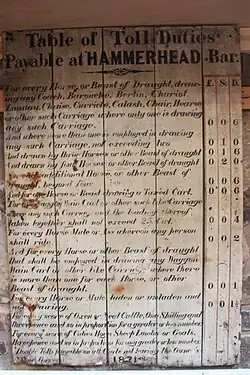 Table of Toll Duties
Payable at HAMMERHEAD Bar.
£. S. D.
For every Horse, or Beast of Draught, draw-
ing any Coach, Barouche, Berlin, Chariot,
Landau, Chaise, Curricle, Calash, Chair, Hearse
or other such Carriage where only one is drawing
any such Carriage. 0 0 6
And where more than one is employed in drawing
any such Carriage, not exceeding two 0 1 0
And drawn by three Horses or other Beast of draught 0 1 6
And drawn by four Horses or other Beast of draught 0 2 0
additional Horse, or other Beast of
beyond four 0 0 6
Horse or Beast drawing a Taxed Cart. 0 0 6
Cart or other such like Carriage
any such Carriage and the loading thereof
taken together shall not exceed 0 0 4
For every Horse Mule or Ass whereon any person
shall ride. 0 0 2
And for every Horse or other Beast of draught
that shall be employed in drawing any Waggon
Wain Cart or other like Carriage where there
is more than one for each Horse, or other
Beast of draught. 0 0 1
For every Horse or Mule laden or unladen and
driving. 0 0 1
For every score of Oxen or Neat Cattle, One Shilling and
Threepence and so in proportion for a greater or less number.
For every score of Calves Hogs Sheep Lambs or Goats,
Threepence and so in proportion for any greater or less number.
Double Tolls payable
1821